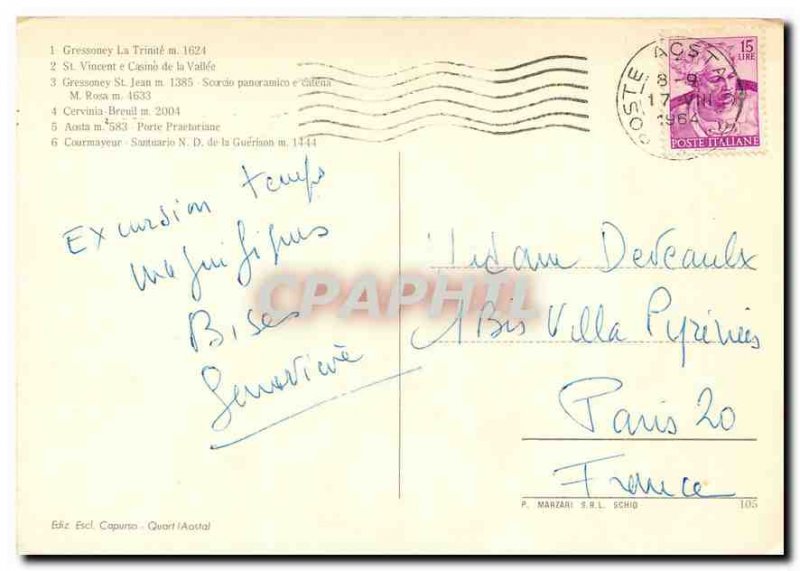 1 Gressoney La Trinité m. 1624
2 St. Vincent e Casinò de la Vallée
3 Gressoney St. Jean m. 1385 - Scorcio panoramico e catena
M. Rosa m. 4633
4 Cervinia-Breuil m. 2004
5 Aosta m. 583 - Porte Praetoriane
6 Courmayeur - Santuario N. D. de la Guérison m. 1444
POSTE AOSTA
8-9
17 VIII
1964
15
LIRE
POSTE ITALIANE
Excursion temps
magnifiques
Bises
Geneviève
Madame Deveaulx
1 Bis Villa Pyrénées
Paris 20
France
CPAPHIL
P. MARZARI S.R.L. SCHIO
105
Ediz. Escl. Capurso - Quart (Aosta)